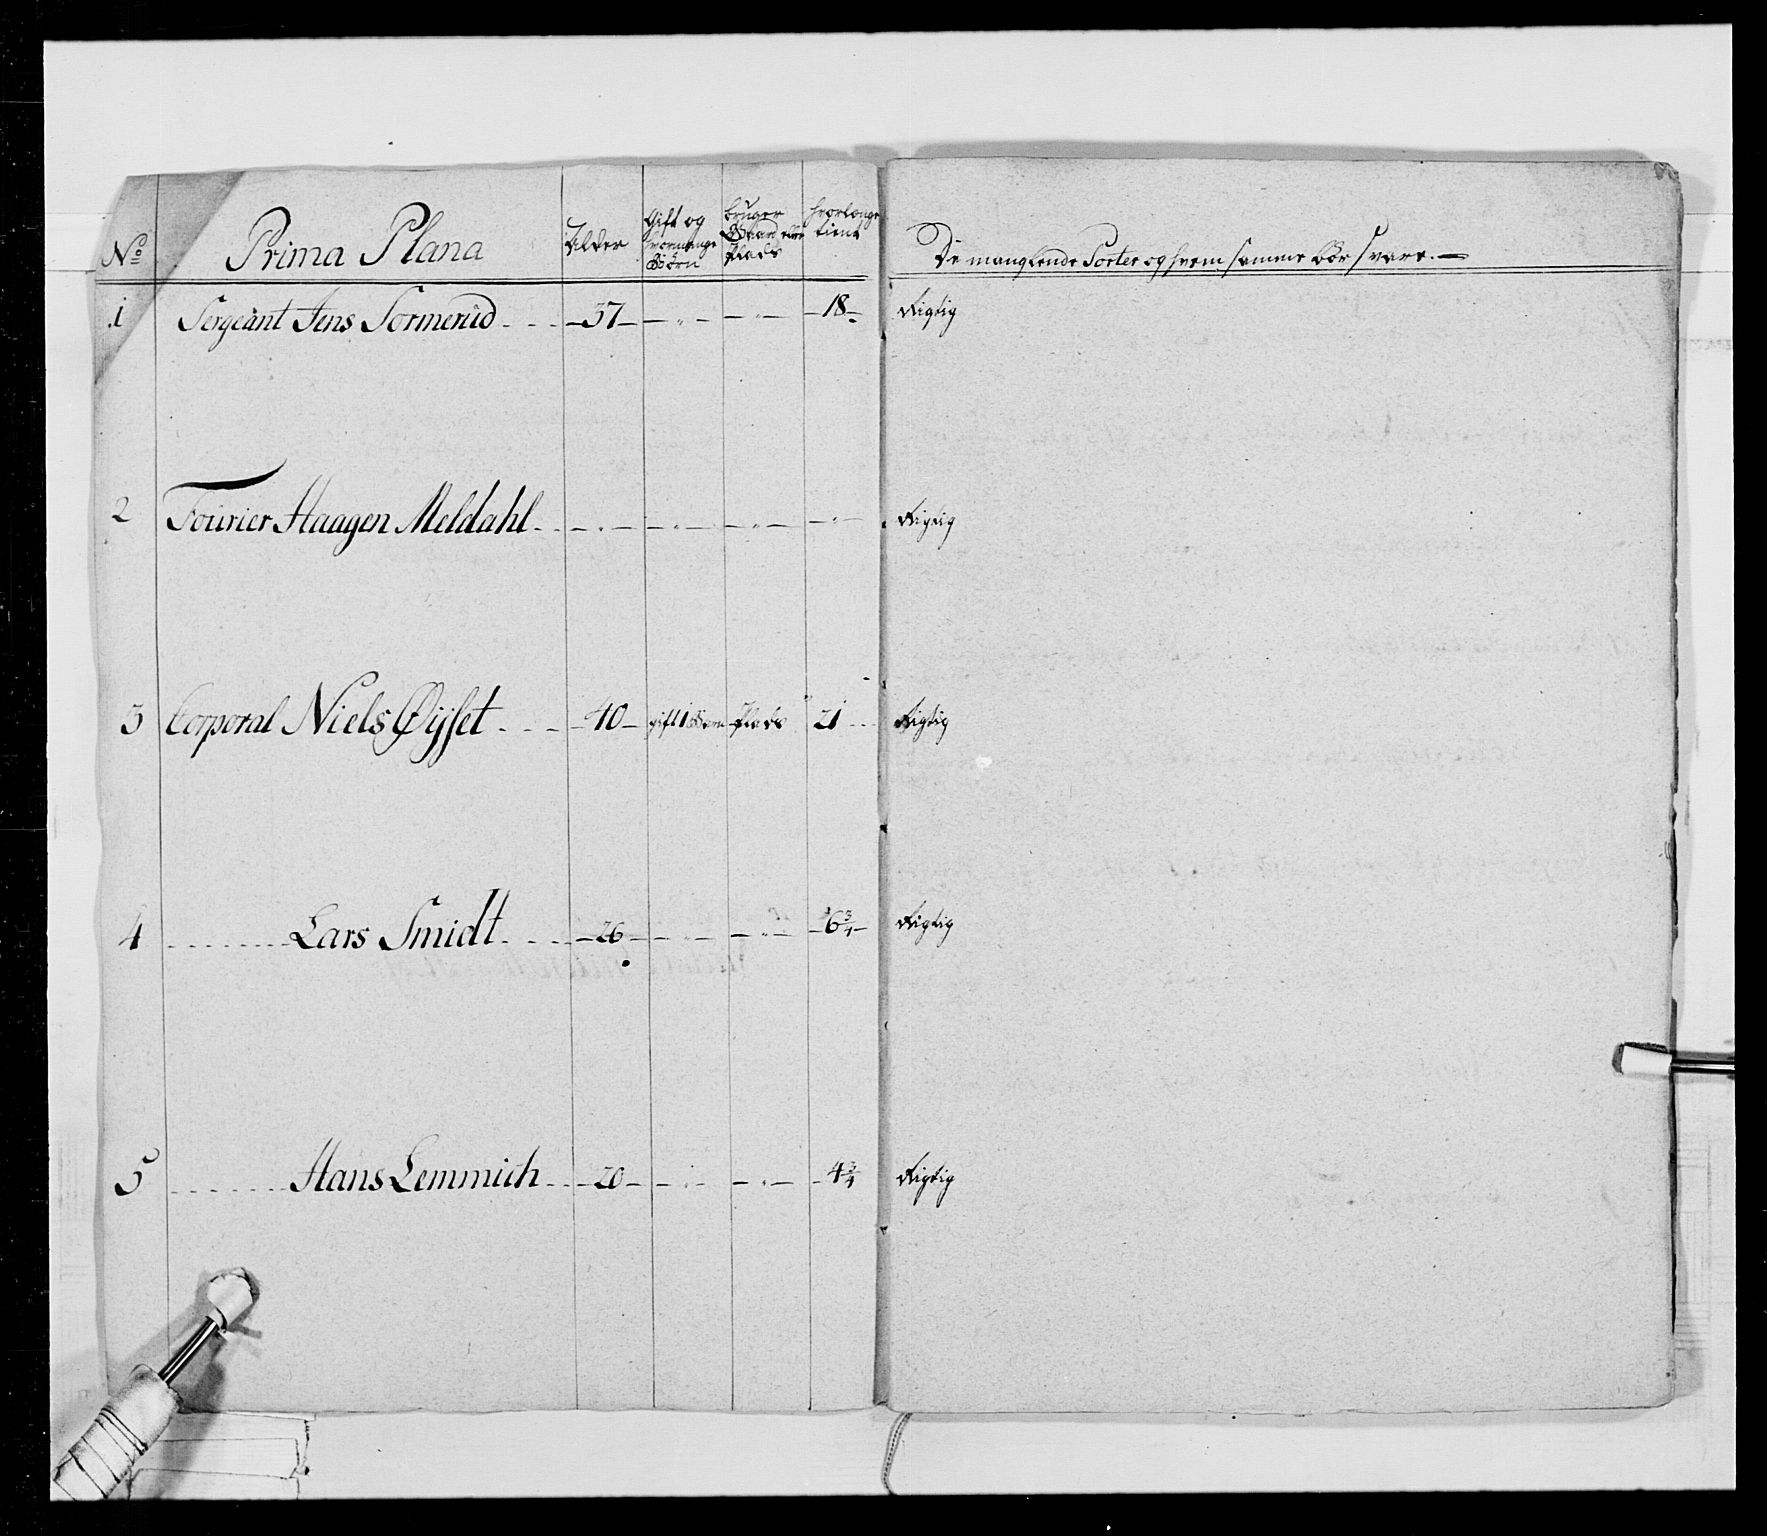 No Prima Plana Alder Gift og hvormange Börn bruger Gaard eller Plads hvorlænge tient De manglende Sorter og hvem samme bör svare. —
1 Sergeant Jens Sormerud - - - 37 - - „ - - „ - - 18 - Rigtig
2 Fourier Haagen Meldahl - - - „ - - „ - - „ - - „ - Rigtig
3 Corporal Niels Øijset - - - 40 - gift 1 Barn Plads 21 - - Rigtig
4 - - - - - - - Lars Smidt - - - 26 - - „ - - „ - - 6 3/4 - Rigtig
5 - - - - - - - Hans Lemmich - - - 20 - - „ - - „ - - 4 3/4 Rigtig